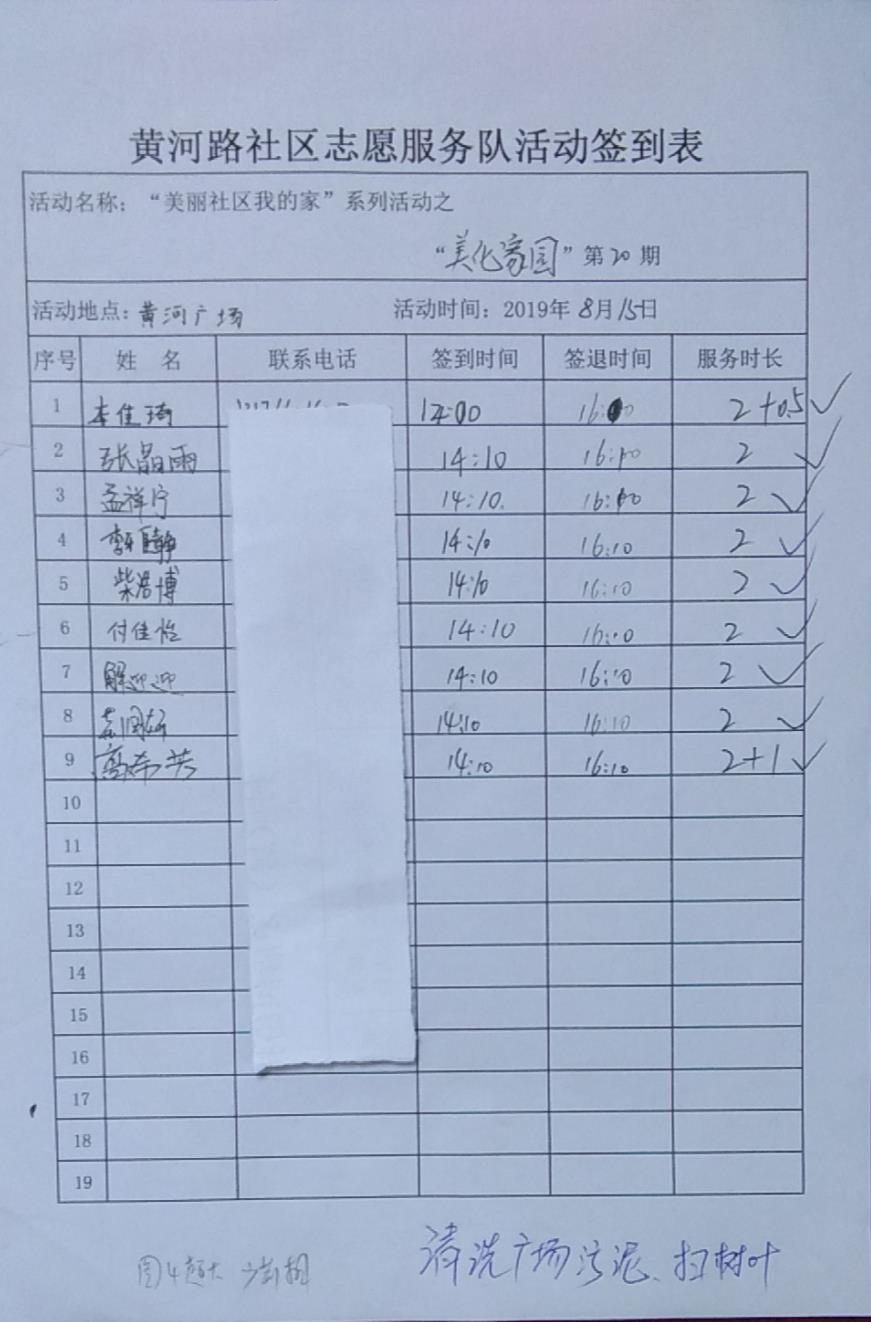 黄河路社区志愿服务队活动签到表
活动名称：“美丽社区我的家”系列活动之
“美化家园”第20期
活动地点：黄河广场 活动时间：2019年8月15日
序号 姓名 联系电话 签到时间 签退时间 服务时长
1 李佳琦 14:00 2+0.5
2 张晶雨 14:10 16:10 2
3 孟祥宁 14:10 16:10 2
4 14:10 16:10 2
5 柴浩博 14:10 16:10 2
6 付佳怡 14:10 16:10 2
7 解迎迎 14:10 16:10 2
8 14:10 16:10 2
9 高希芸 14:10 16:10 2+1
10
11
12
13
14
15
16
17
18
19
清洗广场污泥、扫树叶